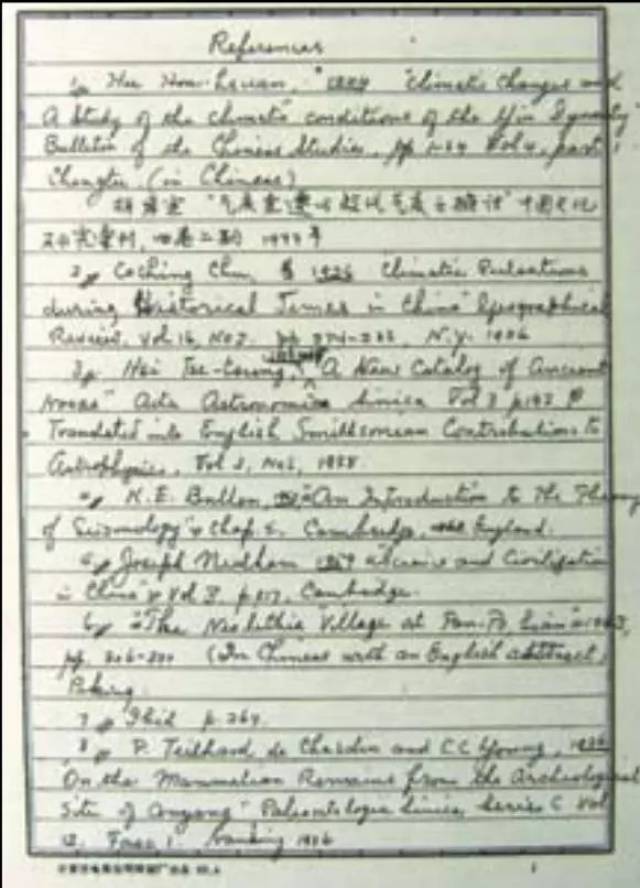 References
1, Hu Hou-hsuan, "1944 "Climatic Changes and
A Study of the climatic conditions of the Yin Dynasty
Bulletin of the Chinese Studies, pp Vol 4, part 1
Chengtu (in Chinese)
胡厚宣 "气候变迁与殷代气候之检讨" 中国文化
研究汇刊, 四卷二期 1944年
2, Coching Chu, 1926 Climatic Pulsations
during Historical Times in China" Geographical
Review, Vol 16, No 2. pp 274-282, N.Y. 1926
3, Hsi Tse-tsung, "A New Catalog of Ancient
Novae" Acta Astronomica Sinica Vol 3 p
Translated into English Smithsonian Contributions to
Astrophysics, Vol 2, No 6, 1958.
4, K.E. Bullen, "An Introduction to the Theory
of Seismology" Chap Cambridge, England.
5, Joseph Needham 1959 Science and Civilization
in China" Vol p Cambridge.
6, "The Neolithic Village at Pan-Po, Sian" 1963,
pp. (In Chinese with an English abstract)
Peking
7, Ibid p. 267.
8, P. Teilhard de Chardin and C C Young, 1936
On the Mammalian Remains from the Archeological
Site of Anyang" Paleontologia Sinica, Series C Vol
12. Fasc 1. Nanking 1936